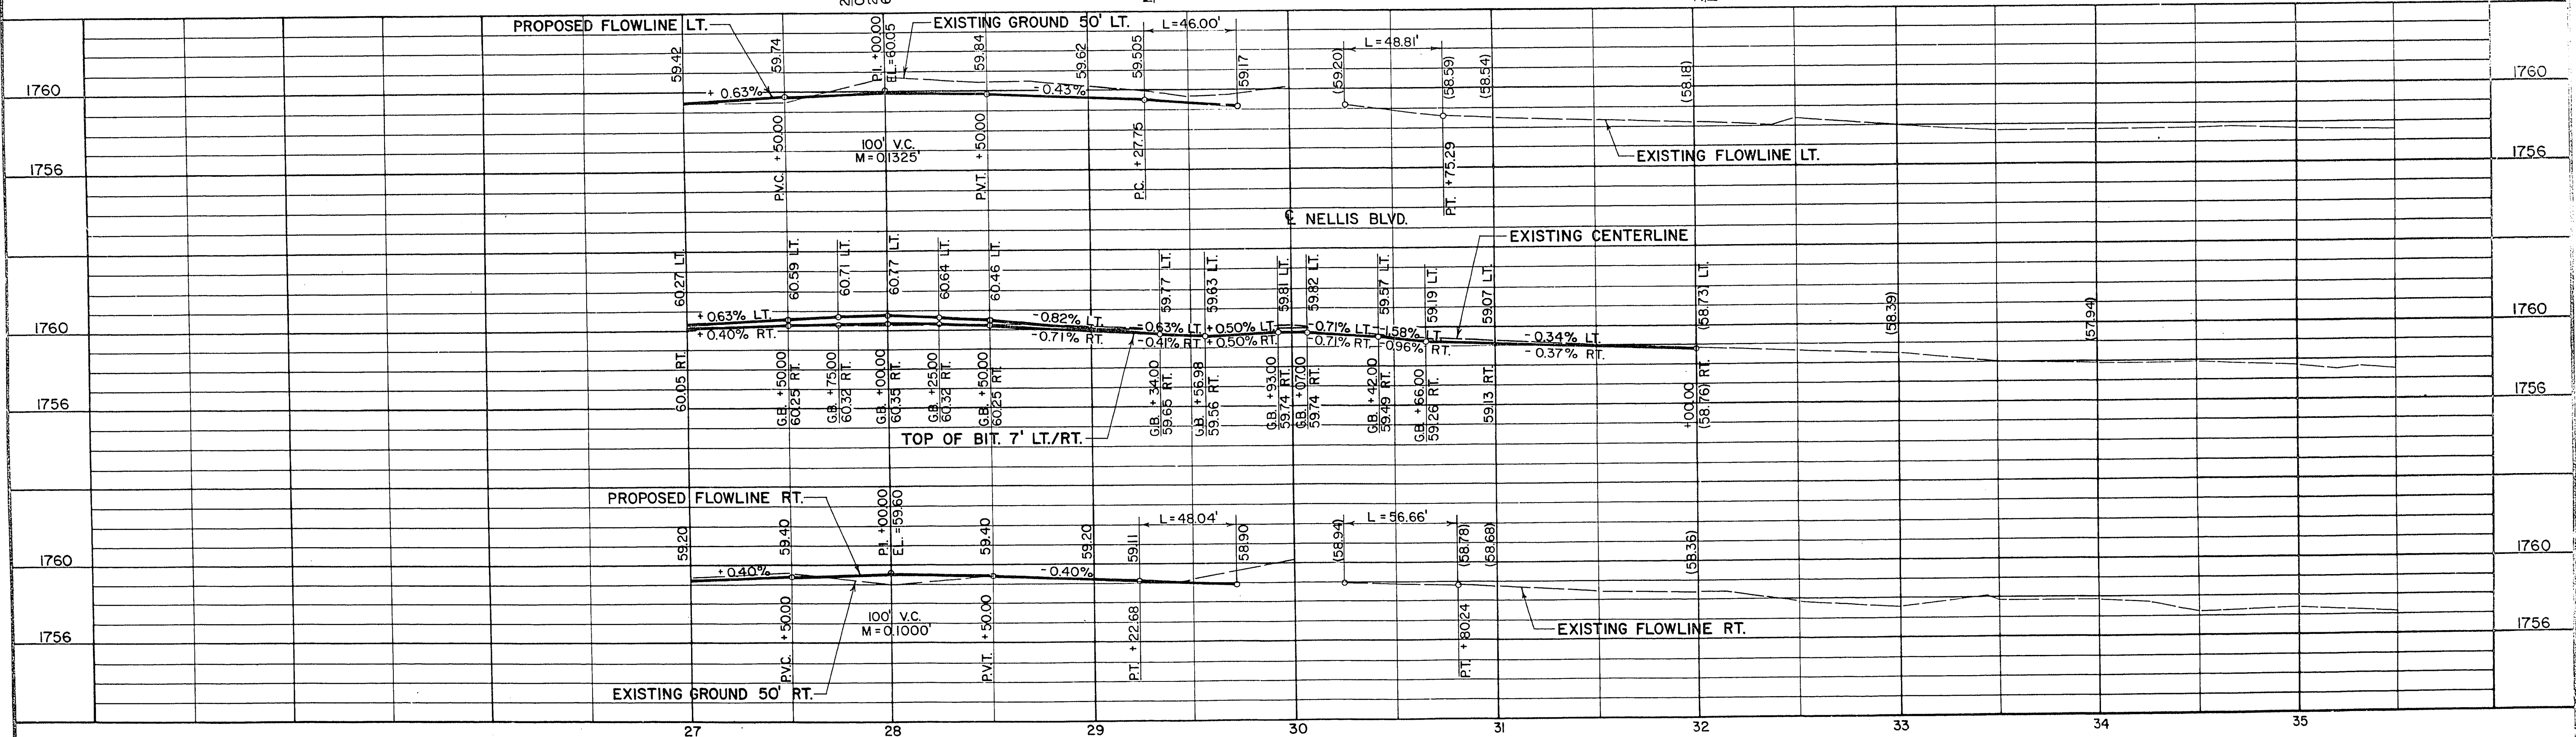 PROPOSED FLOWLINE LT.
EXISTING GROUND 50' LT.
L=46.00'
L=48.81'
59.42
59.74
P.I. +00.00
EL.=60.05
59.84
59.62
59.505
59.17
(59.20)
(58.59)
(58.54)
(58.18)
1760
1760
+ 0.63%
-0.43%
100' V.C.
M=0.1325'
P.V.C. +50.00
P.V.T. +50.00
P.C. +27.75
P.T. +75.29
EXISTING FLOWLINE LT.
1756
1756
℄ NELLIS BLVD.
EXISTING CENTERLINE
60.27 LT.
60.59 LT.
60.71 LT.
60.77 LT.
60.64 LT.
60.46 LT.
59.77 LT.
59.63 LT.
59.81 LT.
59.82 LT.
59.57 LT.
59.19 LT.
59.07 LT.
(58.73) LT.
(58.39)
(57.94)
1760
1760
+0.63% LT.
-0.82% LT.
-0.63% LT.
+0.50% LT.
-0.71% LT.
-1.58% LT.
-0.34% LT.
+0.40% RT.
-0.71% RT.
-0.41% RT.
+0.50% RT.
-0.71% RT.
-0.96% RT.
-0.37% RT.
60.05 RT.
G.B. +50.00
60.25 RT.
G.B. +75.00
60.32 RT.
G.B. +00.00
60.35 RT.
G.B. +25.00
60.32 RT.
G.B. +50.00
60.25 RT.
G.B. +34.00
59.65 RT.
G.B. +56.98
59.56 RT.
G.B. +93.00
59.74 RT.
G.B. +07.00
59.74 RT.
G.B. +42.00
59.49 RT.
G.B. +66.00
59.26 RT.
59.13 RT.
+00.00
(58.76) RT.
1756
1756
TOP OF BIT. 7' LT./RT.
PROPOSED FLOWLINE RT.
L=48.04'
L=56.66'
59.20
59.40
P.I. +00.00
EL.=59.60
59.40
59.20
59.11
58.90
(58.94)
(58.78)
(58.68)
(58.36)
1760
1760
+0.40%
-0.40%
100' V.C.
M=0.1000'
P.V.C. +50.00
P.V.T. +50.00
P.T. +22.68
P.T. +80.24
EXISTING FLOWLINE RT.
1756
1756
EXISTING GROUND 50' RT.
27
28
29
30
31
32
33
34
35